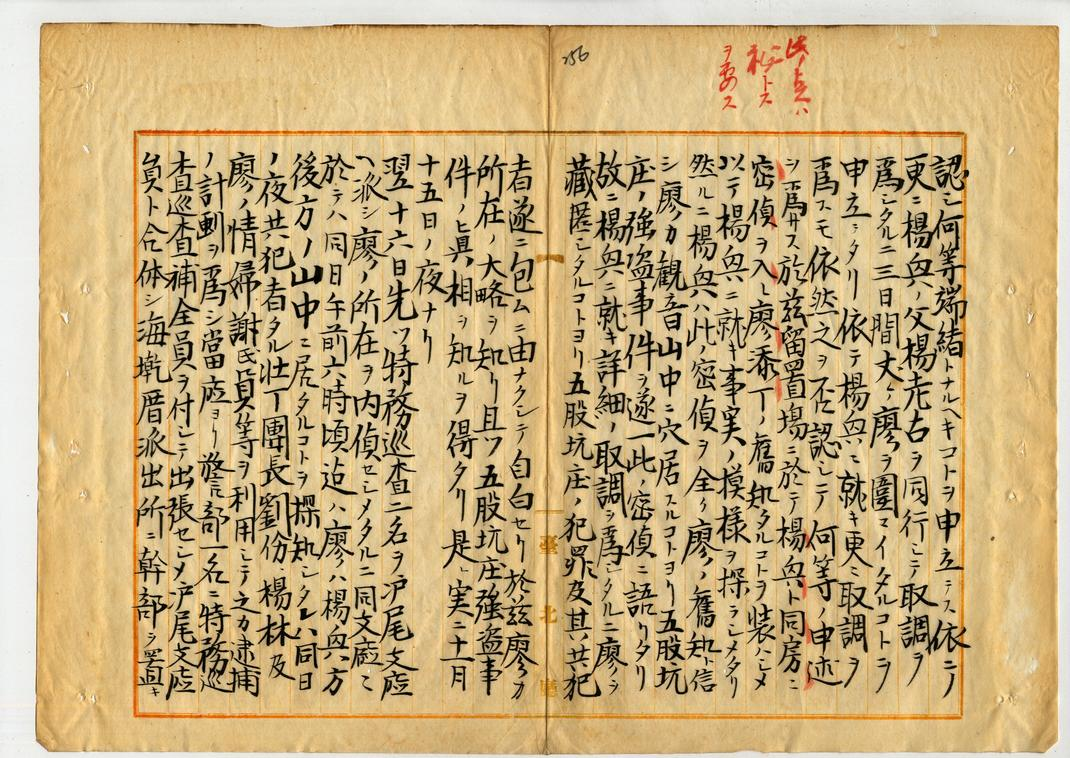 此ノ点ハ
秘トス
ヲ要ス
256
認シ何等端緒トナルヘキコトヲ申立テス依ニノ
更ニ楊與ノ父楊老古ヲ同行シテ取調ヲ
為シタルニ三日間丈ケ廖ヲ圍マイタルコトヲ
申立ヲタリ依テ楊與ニ就キ更ニ取調ヲ
為スモ依然之ヲ否認シテ何等ノ申述
ヲ為サス於茲留置場ニ於テ楊與ト同房ニ
密偵ヲ入レ廖添丁ノ舊知タルコトヲ装ハシメ
以テ楊與ニ就キ事実ノ模様ヲ探ラシメタリ
然ルニ楊與ハ此ノ密偵ヲ全ク廖ノ舊知ト信
シ廖カ観音山中ニ穴居スルコトヨリ五股坑
庄ノ強盗事件ヲ遂一此ノ密偵ニ語リタリ
故ニ楊與ニ就キ詳細ノ取調ヲ為シタルニ廖ヲ
藏匿シタルコトヨリ五股坑庄ノ犯罪及其共犯
者遂ニ包ムニ由ナクシテ自白セリ於茲廖カ
所在ノ大略ヲ知リ且ツ五股坑庄強盗事
件ノ真相ヲ知ルヲ得タリ是レ実ニ十一月
十五日ノ夜ナリ
翌十六日先ツ特務巡査二名ヲ戸尾支廳
ヘ派シ廖ノ所在ヲ内偵セシメタルニ同支廳ニ
於テハ同日午前六時頃迠ハ廖ハ楊與ハ方
後方ノ山中ニ居タルコトヲ探知シタルハ同日
ノ夜共犯者タル壮丁團長劉份、楊林及
廖ノ情婦謝氏員等ヲ利用シテ之カ逮捕
ノ計劃ヲ為シ當廳ヨリ警部一名ニ特務巡
査巡査補全員ヲ付シテ出張セシメ戸尾支廳
員ト合体シ海墘厝派出所ニ幹部ヲ置キ
臺北廳